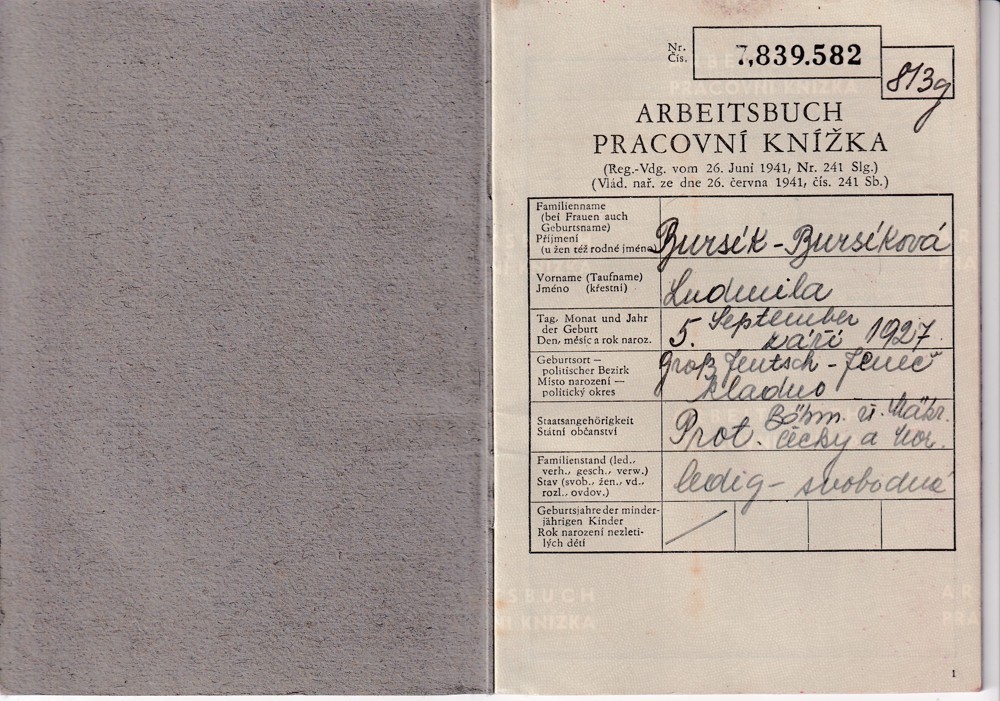 Nr.
Čís.
7,839.582
813g
ARBEITSBUCH
PRACOVNÍ KNÍŽKA
(Reg.-Vdg. vom 26. Juni 1941, Nr. 241 Slg.)
(Vlád. nař. ze dne 26. června 1941, čís. 241 Sb.)
Familienname
(bei Frauen auch
Geburtsname)
Příjmení
(u žen též rodné jméno)
Bursík - Bursíková
Vorname (Taufname)
Jméno (křestní)
Ludmila
Tag, Monat und Jahr
der Geburt
Den, měsíc a rok naroz.
5. September
září 1927.
Geburtsort —
politischer Bezirk
Místo narození —
politický okres
Groß Jentsch - Jeneč
Kladno
Staatsangehörigkeit
Státní občanství
Prot. Böhm. u. Mähr.
Čechy a Mor.
Familienstand (led.,
verh., gesch., verw.)
Stav (svob., žen., vd.,
rozl., ovdov.)
ledig - svobodná
Geburtsjahre der minder-
jährigen Kinder
Rok narození nezleti-
lých dětí
TSBUCH
NÍ KNÍŽKA
AR
PRA
1